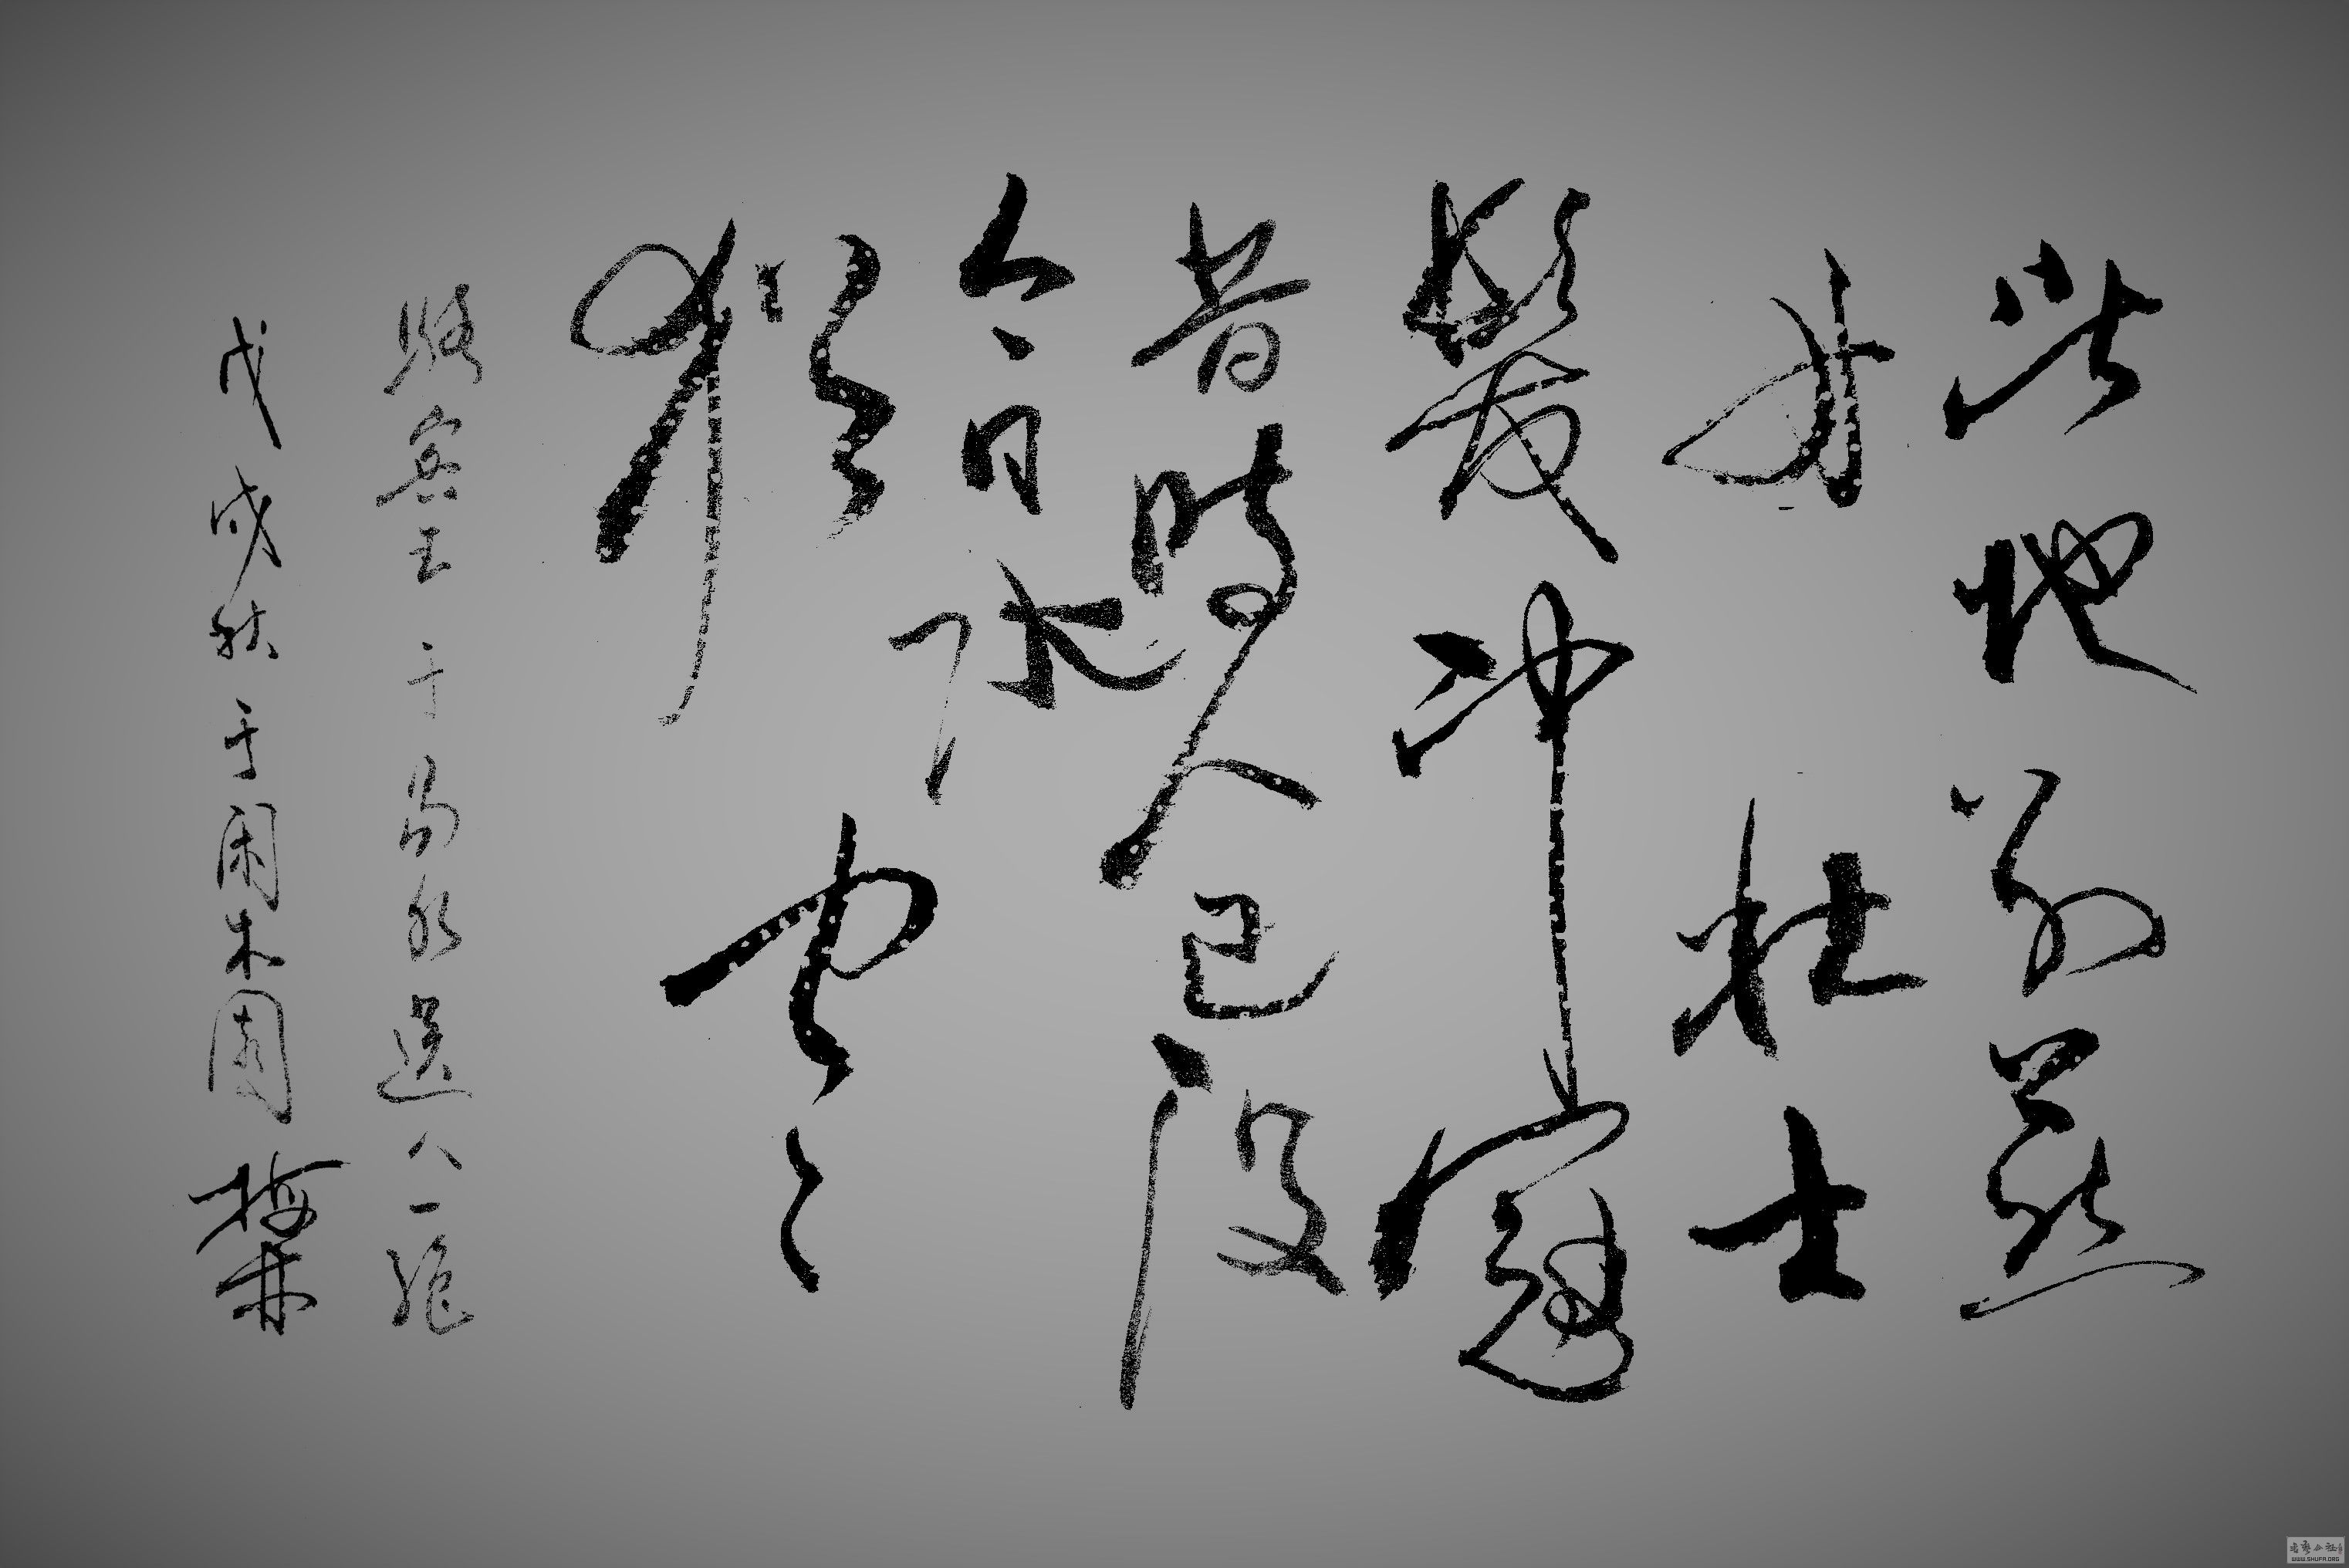 此地别燕
丹壮士
髮冲冠
昔时人已没
今日水
猶寒
駱賓王于易水送人一绝
戊戌秋于闲木園 梅
WWW.SHUFA.ORG